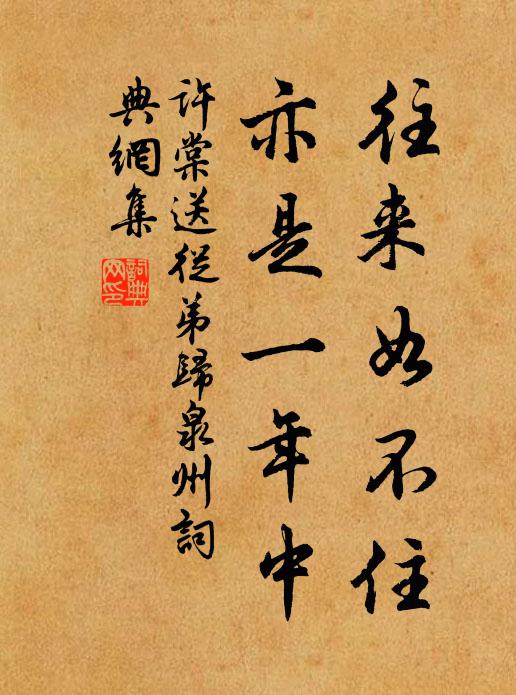 往来如不住
亦是一年中
許棠送從弟歸泉州詞
典網集
詞典
网印